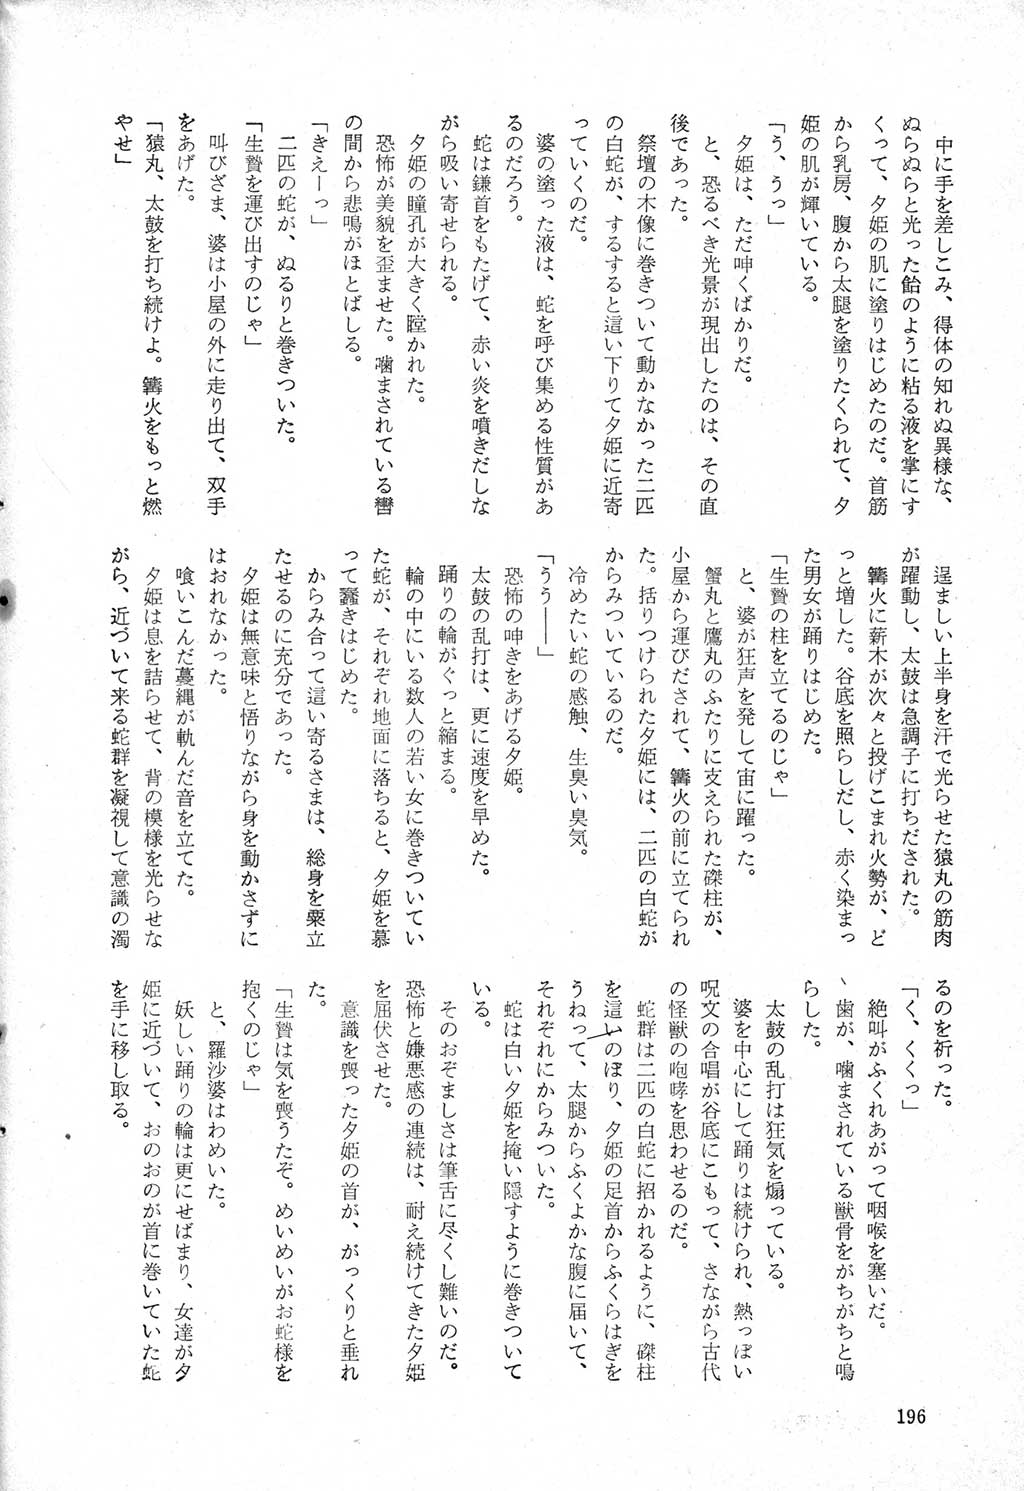 中に手を差しこみ、得体の知れぬ異様な、
ぬらぬらと光った飴のように粘る液を掌にす
くって、夕姫の肌に塗りはじめたのだ。首筋
から乳房、腹から太腿を塗りたくられて、夕
姫の肌が輝いている。
「う、うっ」
夕姫は、ただ呻くばかりだ。
と、恐るべき光景が現出したのは、その直
後であった。
祭壇の木像に巻きついて動かなかった二匹
の白蛇が、するすると這い下りて夕姫に近寄
っていくのだ。
婆の塗った液は、蛇を呼び集める性質があ
るのだろう。
蛇は鎌首をもたげて、赤い炎を噴きだしな
がら吸い寄せられる。
夕姫の瞳孔が大きく瞠かれた。
恐怖が美貌を歪ませた。噛まされている轡
の間から悲鳴がほとばしる。
「きえーっ」
二匹の蛇が、ぬるりと巻きついた。
「生贄を運び出すのじゃ」
叫びざま、婆は小屋の外に走り出て、双手
をあげた。
「猿丸、太鼓を打ち続けよ。篝火をもっと燃
やせ」
逞ましい上半身を汗で光らせた猿丸の筋肉
が躍動し、太鼓は急調子に打ちだされた。
篝火に薪木が次々と投げこまれ火勢が、ど
っと増した。谷底を照らしだし、赤く染まっ
た男女が踊りはじめた。
「生贄の柱を立てるのじゃ」
と、婆が狂声を発して宙に躍った。
蟹丸と鷹丸のふたりに支えられた磔柱が、
小屋から運びだされて、篝火の前に立てられ
た。括りつけられた夕姫には、二匹の白蛇が
からみついているのだ。
冷めたい蛇の感触、生臭い臭気。
「うう――」
恐怖の呻きをあげる夕姫。
太鼓の乱打は、更に速度を早めた。
踊りの輪がぐっと縮まる。
輪の中にいる数人の若い女に巻きついてい
た蛇が、それぞれ地面に落ちると、夕姫を慕
って蠢きはじめた。
からみ合って這い寄るさまは、総身を粟立
たせるのに充分であった。
夕姫は無意味と悟りながら身を動かさずに
はおれなかった。
喰いこんだ蔓縄が軌んだ音を立てた。
夕姫は息を詰らせて、背の模様を光らせな
がら、近づいて来る蛇群を凝視して意識の濁
るのを祈った。
「く、くくっ」
絶叫がふくれあがって咽喉を塞いだ。
歯が、噛まされている獣骨をがちがちと鳴
らした。
太鼓の乱打は狂気を煽っている。
婆を中心にして踊りは続けられ、熱っぽい
呪文の合唱が谷底にこもって、さながら古代
の怪獣の咆哮を思わせるのだ。
蛇群は二匹の白蛇に招かれるように、磔柱
を這いのぼり、夕姫の足首からふくらはぎを
うねって、太腿からふくよかな腹に届いて、
それぞれにからみついた。
蛇は白い夕姫を掩い隠すように巻きついて
いる。
そのおぞましさは筆舌に尽くし難いのだ。
恐怖と嫌悪感の連続は、耐え続けてきた夕姫
を屈伏させた。
意識を喪った夕姫の首が、がっくりと垂れ
た。
「生贄は気を喪うたぞ。めいめいがお蛇様を
抱くのじゃ」
と、羅沙婆はわめいた。
妖しい踊りの輪は更にせばまり、女達が夕
姫に近づいて、おのおのが首に巻いていた蛇
を手に移し取る。
196